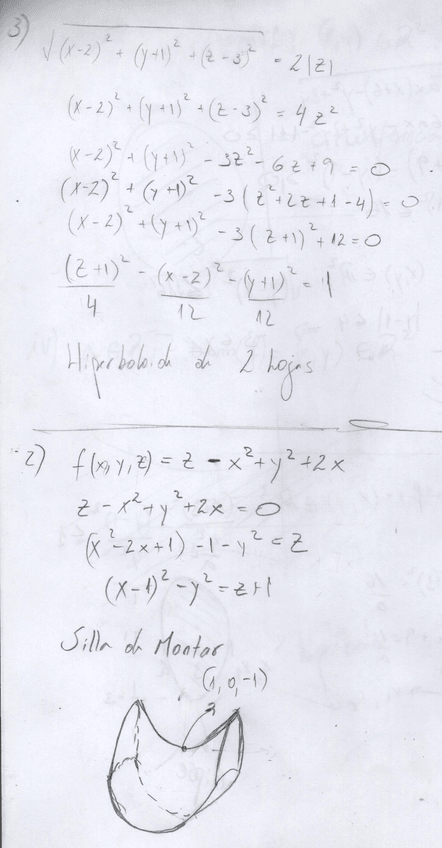 3) √((x-2)² + (y+1)² + (z-3)²) = 2|z|
(x-2)² + (y+1)² + (z-3)² = 4z²
(x-2)² + (y+1)² - 3z² - 6z + 9 = 0
(x-2)² + (y+1)² - 3(z² + 2z + 1 - 4) = 0
(x-2)² + (y+1)² - 3(z+1)² + 12 = 0
(z+1)²/4 - (x-2)²/12 - (y+1)²/12 = 1
Hiperboloide de 2 hojas
2) f(x,y,z) = z - x² + y² + 2x
z - x² + y² + 2x = 0
(x² - 2x + 1) - 1 - y² = z
(x-1)² - y² = z+1
Silla de Montar
(1, 0, -1)